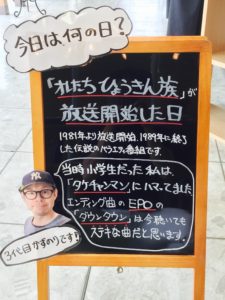 今日は何の日?
「オレたちひょうきん族」が
放送開始した日
1981年より放送開始、1989年に終了
した伝説のバラエティ番組です。
当時小学生だった私は、
「タケチャンマン」にハマってました
エンディング曲のEPOの
「ダウンタウン」は今聴いても
ステキな曲だと思います。
3代目かずのりです!